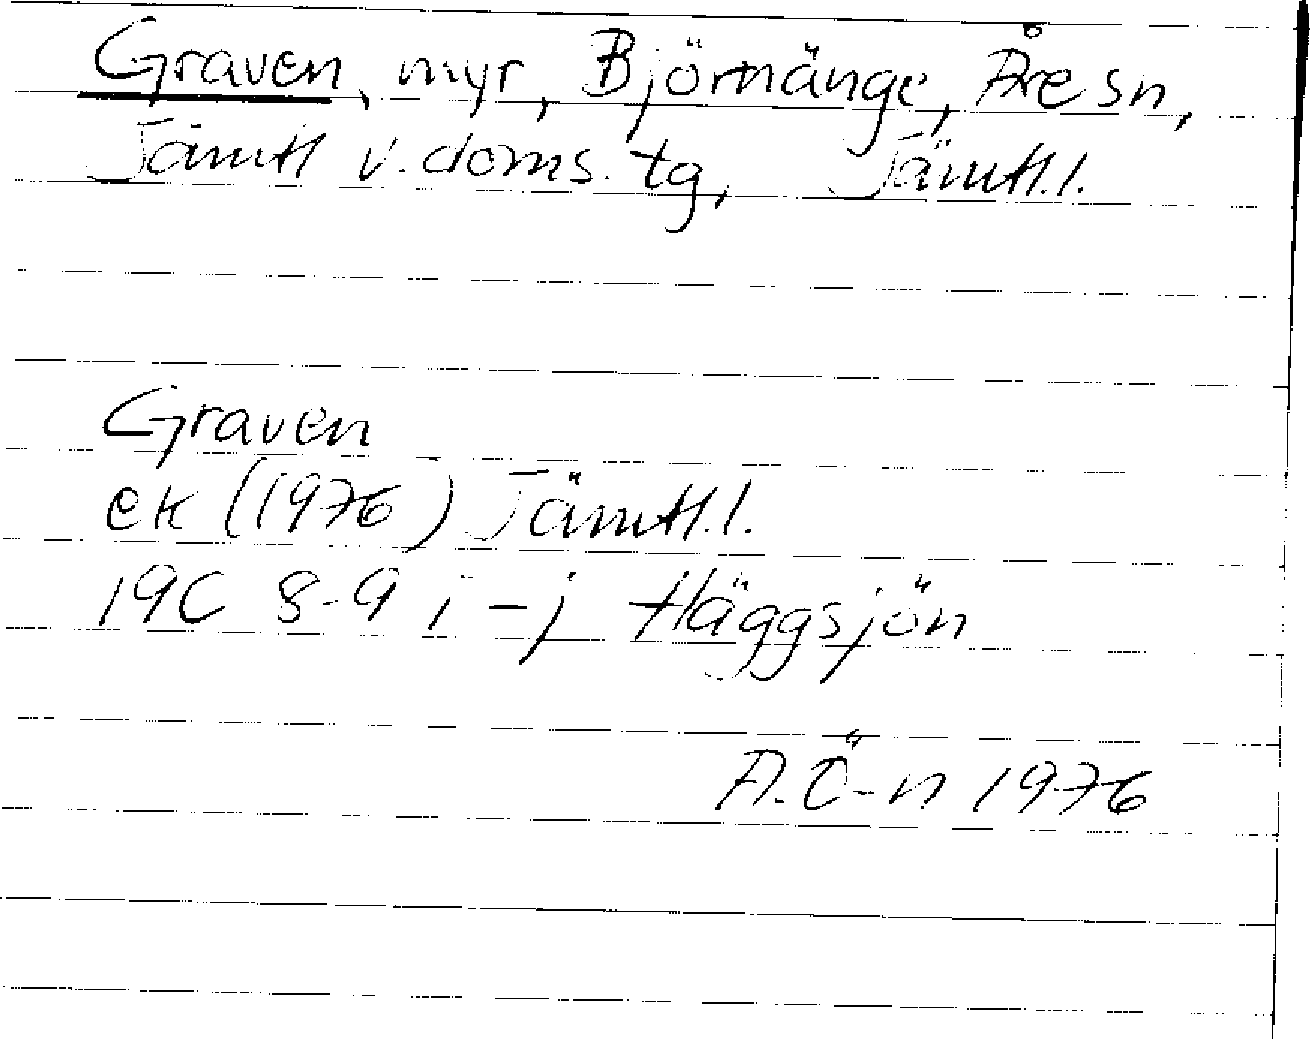 Graven, myr, Björnänge, Åre sn,
Jämtl v. doms. tg, Jämtl.l.
Graven
ek (1976) Jämtl.l.
19C 8-9 i-j Häggsjön
A.Ö-n 1976